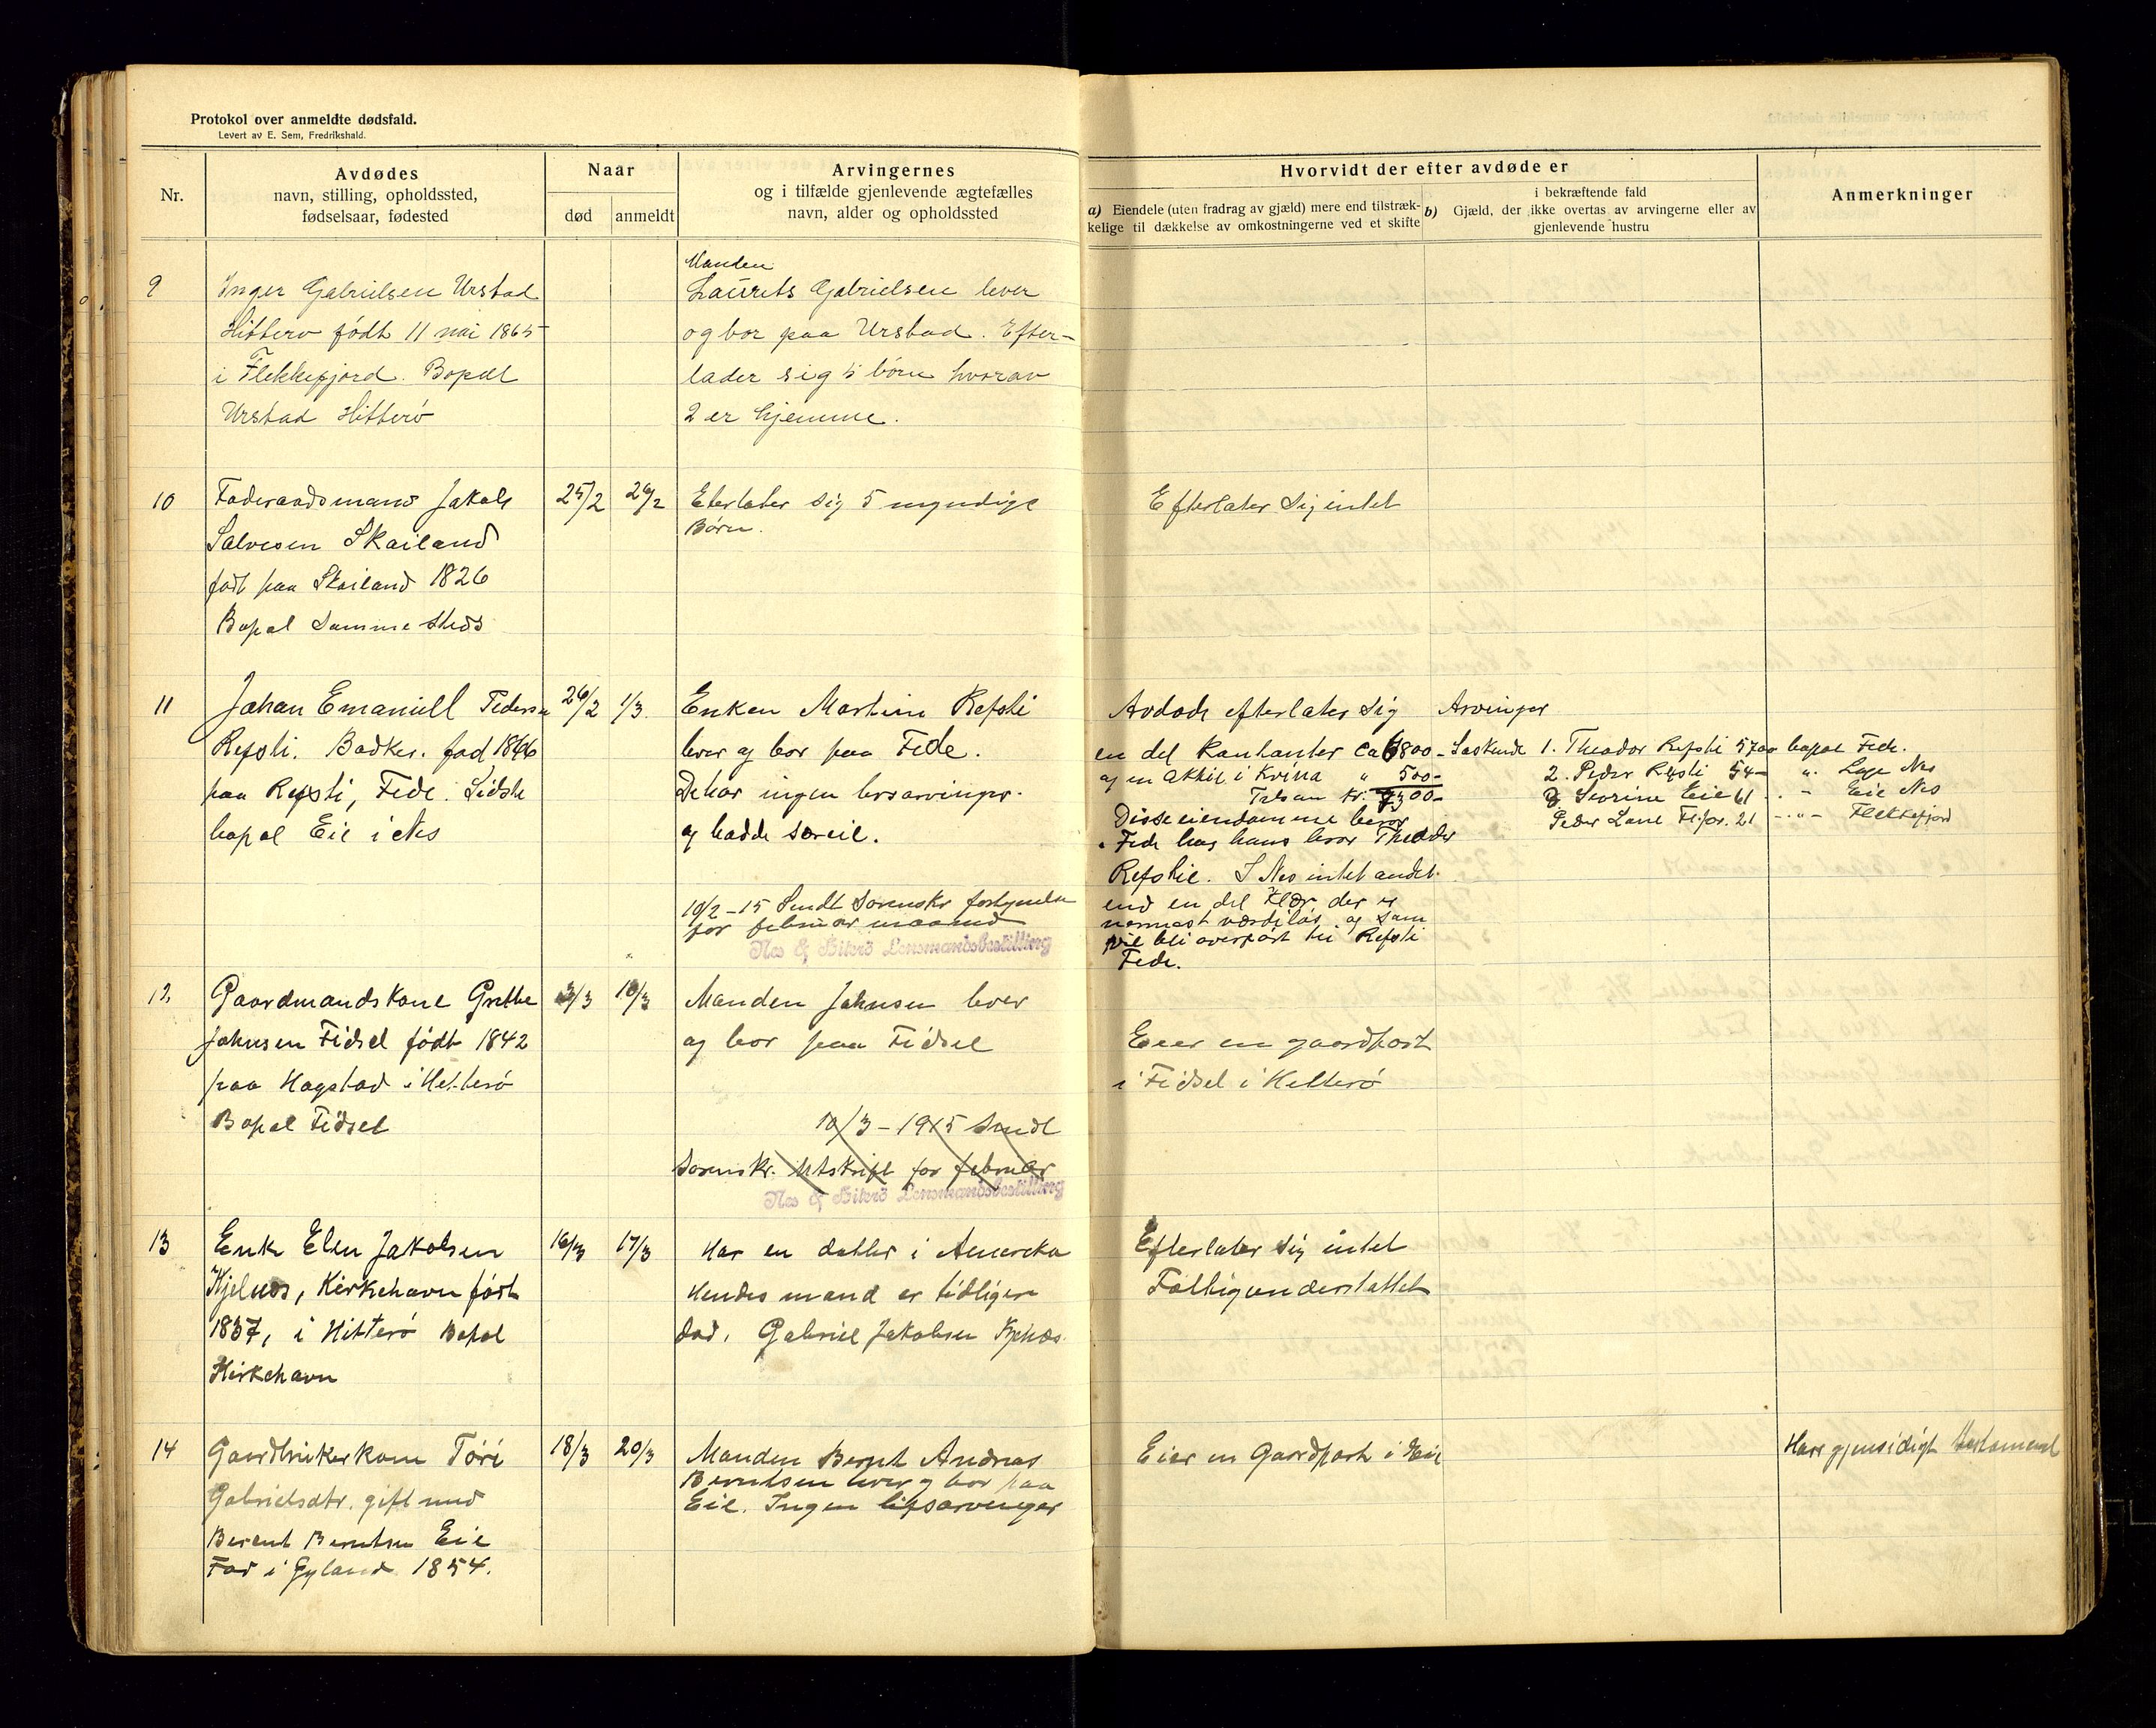 Protokol over anmeldte dødsfald.
Levert av E. Sem, Fredrikshald.
Nr.
Avdødes
navn, stilling, opholdssted,
fødselsaar, fødested
Naar
død
anmeldt
Arvingernes
og i tilfælde gjenlevende ægtefælles
navn, alder og opholdssted
Hvorvidt der efter avdøde er
a) Eiendele (uten fradrag av gjæld) mere end tilstræk-
kelige til dækkelse av omkostningerne ved et skifte
i bekræftende fald
b) Gjæld, der ikke overtas av arvingerne eller av
gjenlevende hustru
Anmerkninger
9
Inger Gabrielsen Urstad
Hitterø født 11 mai 1865
i Flekkefjord. Bopæl
Urstad Hitterø
Manden
Laurits Gabrielsen lever
og bor paa Urstad. Efter-
lader sig 5 børn hvorav
2 er hjemme.
10
Føderaadsmand Jakob
Salvesen Skailand
født paa Skailand 1826
Bopæl Sammesteds
25/2
26/2
Eterlater sig 5 myndige
Børn.
Efterlater Sig intet
11
Johan Emaniell Pedersen
Refsti. Bødker. fød 1846
paa Refsti, Fede. Sidste
bopæl Eie i Nes
26/2
1/3
Enken Martine Refsti
lever og bor paa Fede.
De har ingen livsarvinger.
og hadde særeie.
10/2-15 Sendt Sorenskr
for februar maaned
Nes & Hiterö Lensmandsbestilling
Avdøde efterlater Sig
en del kontanter ca 6800-
og en aktie i Kvina " 500-
Tilsam Kr. 7300-
Disse eiendomme beror
i Fede hos hans bror Theodor
Refstie. I Nes intet andet
end en del Klær der er
nærmest værdiløs og som
vil bli overført til Refsti
Fede.
Arvinger
Søskende 1. Theodor Refsti 57 aar bopæl Fede.
2. Peder Refsti 54- " Nes
3 Sevrine Eie 61 - " - Eie Nes
Peder Lane 21 - " - Flekkefjord
12
Gaardmandskone Grethe
Johnsen Fidsel født 1842
paa Hagstad i Hitterø
Bopæl Fidsel
3/3
10/3
Manden Johnsen lever
og bor paa Fidsel
10/3-1915 Sendt
Sorenskr. Utskrift for februar
Nes & Hiterö Lensmandsbestilling
Eier en gaardpart
i Fidsel i Hitterø
13
Enke Elen Jakobsen
Kjelnes, Kirkehavn født
1837, i Hitterø Bopæl
Kirkehavn
16/3
17/3
Har en datter i Amerika
Hendes mand er tidligere
død, Gabriel Jakobsen Kjelnæs.
Efterlater Sig intet
Fattigunderstøttet
14
Gaardbrukerkone Tøri
Gabrielsdtr. gift med
Berent Berntsen Eie
Fød i Gyland 1854.
18/3
20/3
Manden Bernt Andreas
Berntsen lever og bor paa
Eie. Ingen livsarvinger
Eier en Gaardpart i Eie
Har gjensidigt testament